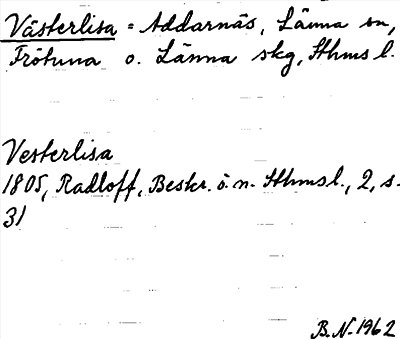 Västerlisa = Addarnäs, Länna sn,
Frötuna o. Länna skg, Sthms l.
Vesterlisa
1805, Radloff, Beskr. ö. n. Sthmsl., 2, s.
31
B.N. 1962